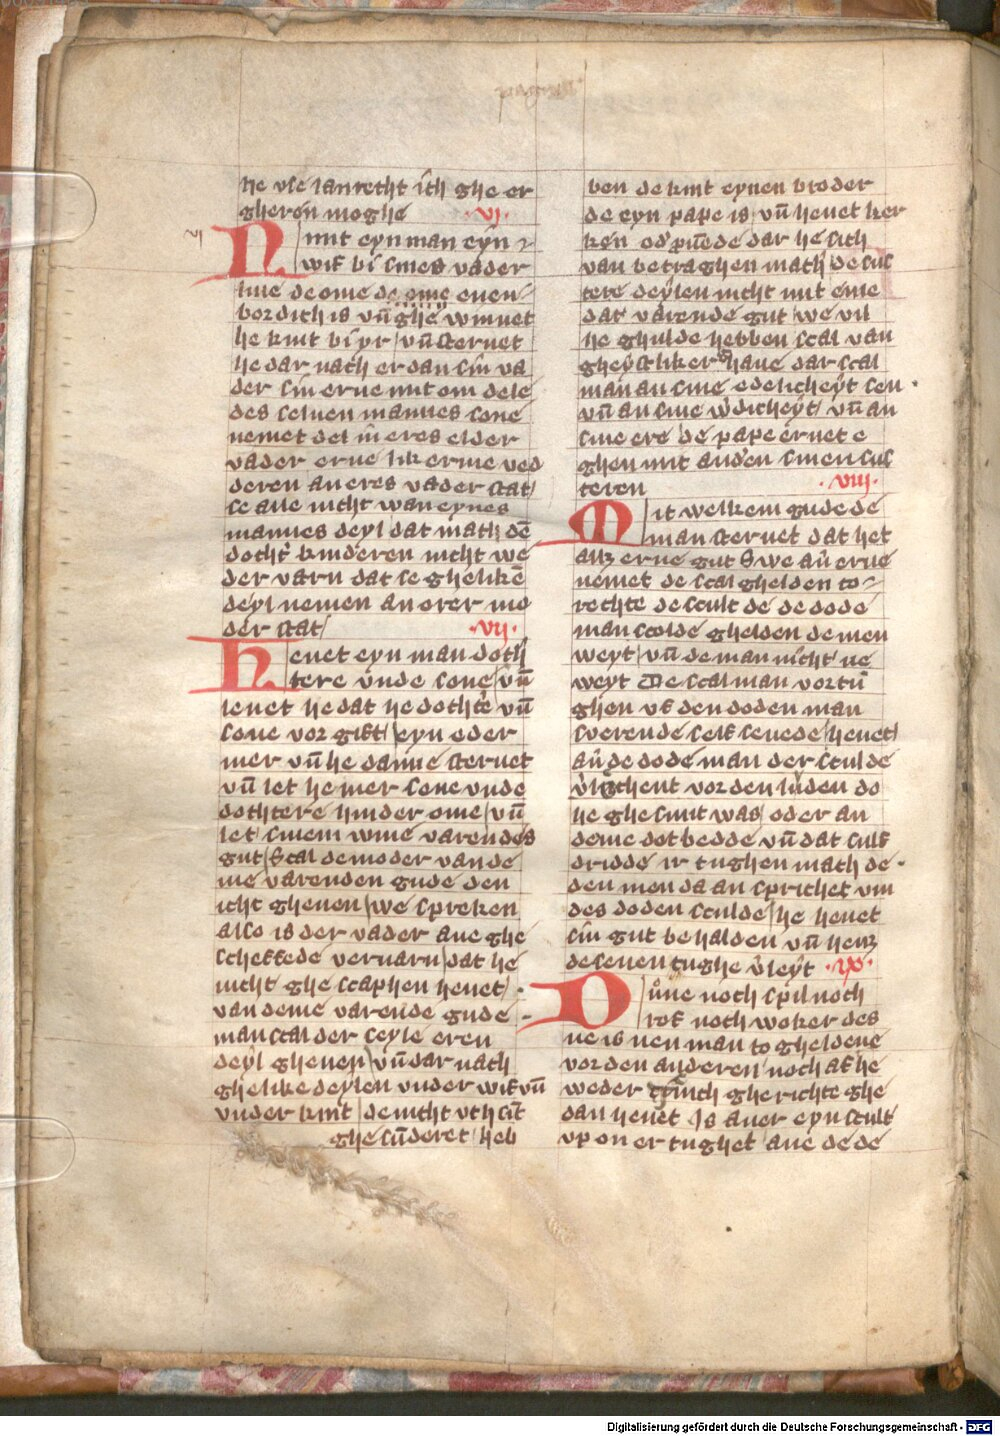 he vse lanrecht ich ghe er
gheren moghe ·vi·
vi
Nimt eyn man eyn
wif bi sines vader
liue de ome de ome euen
bordich is vn̄ ghe winnet
he kint bi yr vn̄ steruet
he dar nach er dan sin va
der sin erue mit om dele
des seluen mannes sone
nemet del in eres elder
vader erue lik erme ved
deren an eres vader stat
se alle nicht wan eynes
mannes deyl dat mach dē
docht' kinderen nicht we
der varn dat se ghelikē
deyl nemen an orer mo
der stat ·vij·
Heuet eyn man doch
tere vnde sone vn̄
leuet he dat he dochtē vn̄
sone vor gift eyn oder
mer vn̄ he danne steruet
vn̄ let he mer sone vnde
dochtere hinder ome vn̄
let sinem wiue varendes
gut Scal de moder van de
me varenden gude den
icht gheuen we spreken
also is der vader aue ghe
scheffede veruarn dat he
nicht ghe scaphen heuet
van deme varende gude
man scal der seyle eren
deyl gheuen vn̄ dar nach
ghelike deylen vnder wif vn̄
vnder kint de nicht vth sīt
ghe sūderet heb
ben de kint eynen broder
de eyn pape is vn̄ heuet ker
ken od' pūede dar he sich
van betraghen mach de sus
tere deylen nicht mit eme
dat varende gut we vil
he ghulde hebben scal van
gheystliker haue dar scal
man an sine edelicheyt sen
vn̄ an sine w'dicheyt vn̄ an
sine ere de pape eruet e
ghen mit and'en sinen sus
teren ·viij·
Mit welkem gude de
man steruet dat het
allꝫ erue gut Swe aū erue
nemet de scal ghelden to
rechte de scult de de dode
man scolde ghelden de men
weyt vn̄ de man nicht ne
weyt De scal man vortū
ghen vf den doden man
swerende self seuede heuet
aū de dode man der sculde
v'ligthent vor den lūden do
he ghesunt was oder an
deme dot bedde vn̄ dat sulf
dridde ir tughen mach de
den men da an sprichet vm
des doden sculde he heuet
sin gut behalden vn̄ henꝫ
de seuen tughe v'leyt ·ix·
Dūue noch spil noch
rof noch woker des
ne is nen man to gheldene
vor den anderen noch af he
weder ghe richte ghe
dan heuet Is auer eyn scult
vp on er tughet aue de de
Digitalisierung gefördert durch die Deutsche Forschungsgemeinschaft - DFG